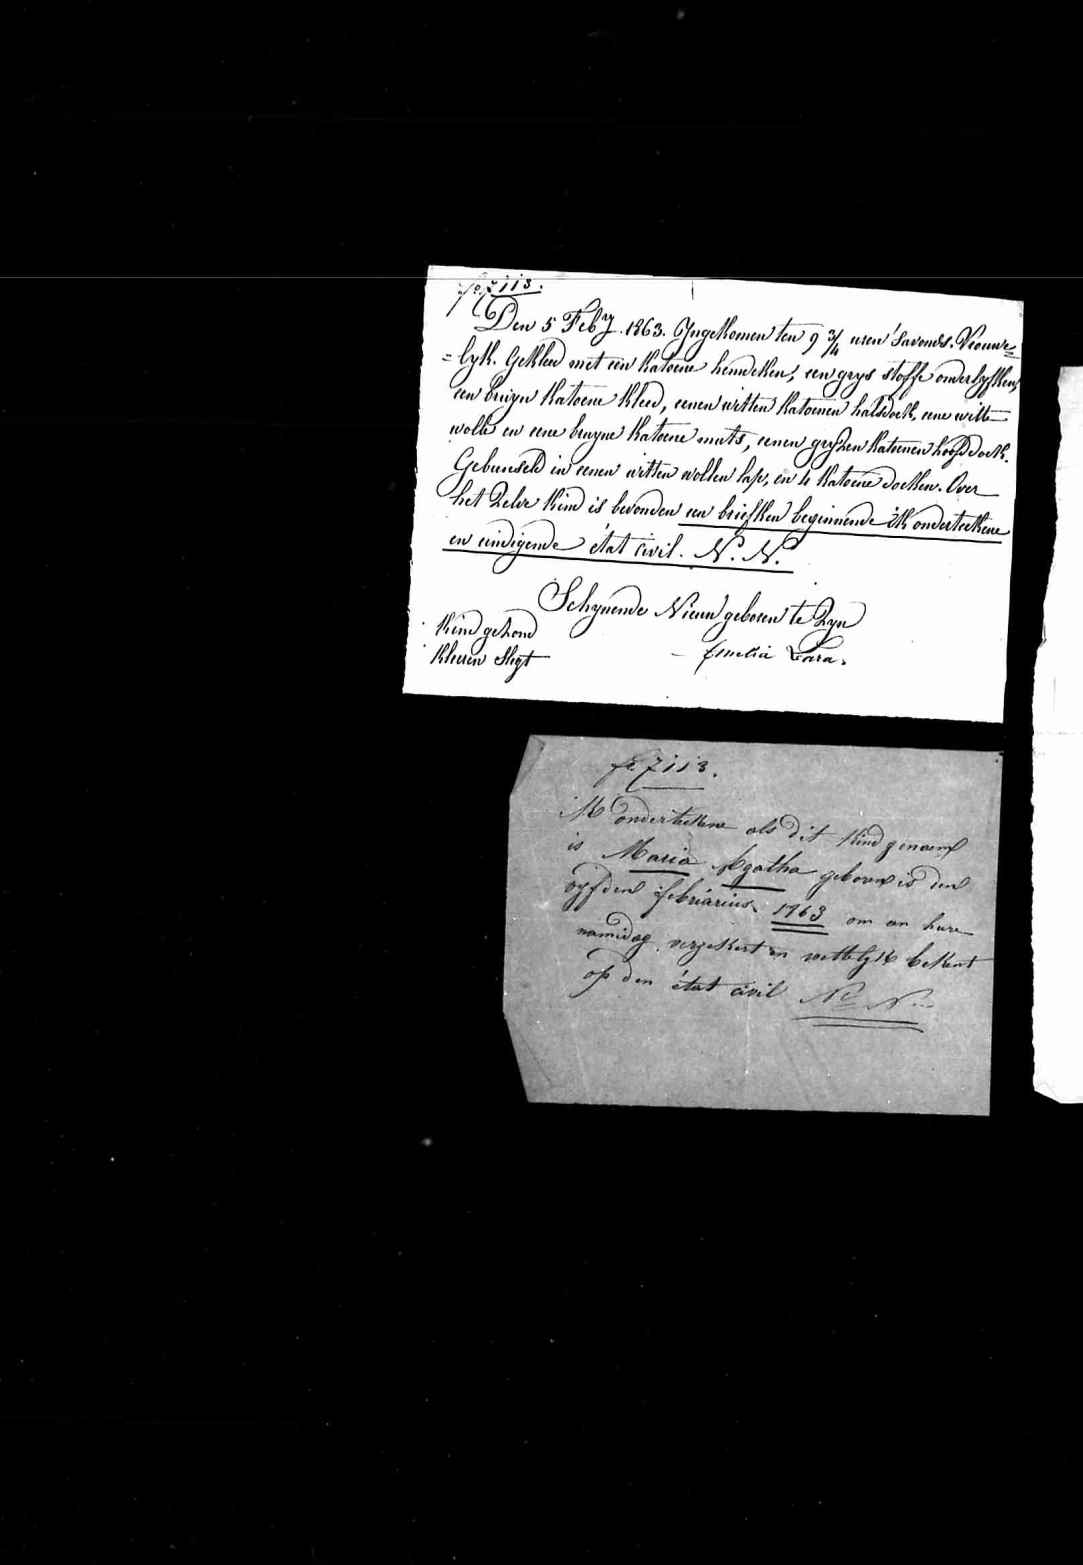 fo. 7113.
Den 5 Febry. 1863. Yngekomen ten 9 3/4 uren 'savonds. Vrouwe=
=lyk. Gekleed met een katoene hemdeken, een grys stoffe onderlyfken,
een bruyn katoene kleed, eenen witten katoenen halsdoek, eene witte
wolle en eene bruyne katoene muts, eenen gryzen katoenen hoofddoek.
Gebunseld in eenen witten wollen lap, en 4 katoene doeken. Over
het zelve kind is bevonden een briefken beginnende ik onderteekene
en eindigende état civil. N. N.
Schynende Nieuw geboren te zyn
Kind gezond
Kleeren Slegt
- Emelia Zara.
fo 7113.
ik onderteekene als dit kind genaemd
is Maria Agatha geboren is den
vyfden februarius 1763 om an hure
namidag verzekert en wettelyk bekent
op den état civil N N